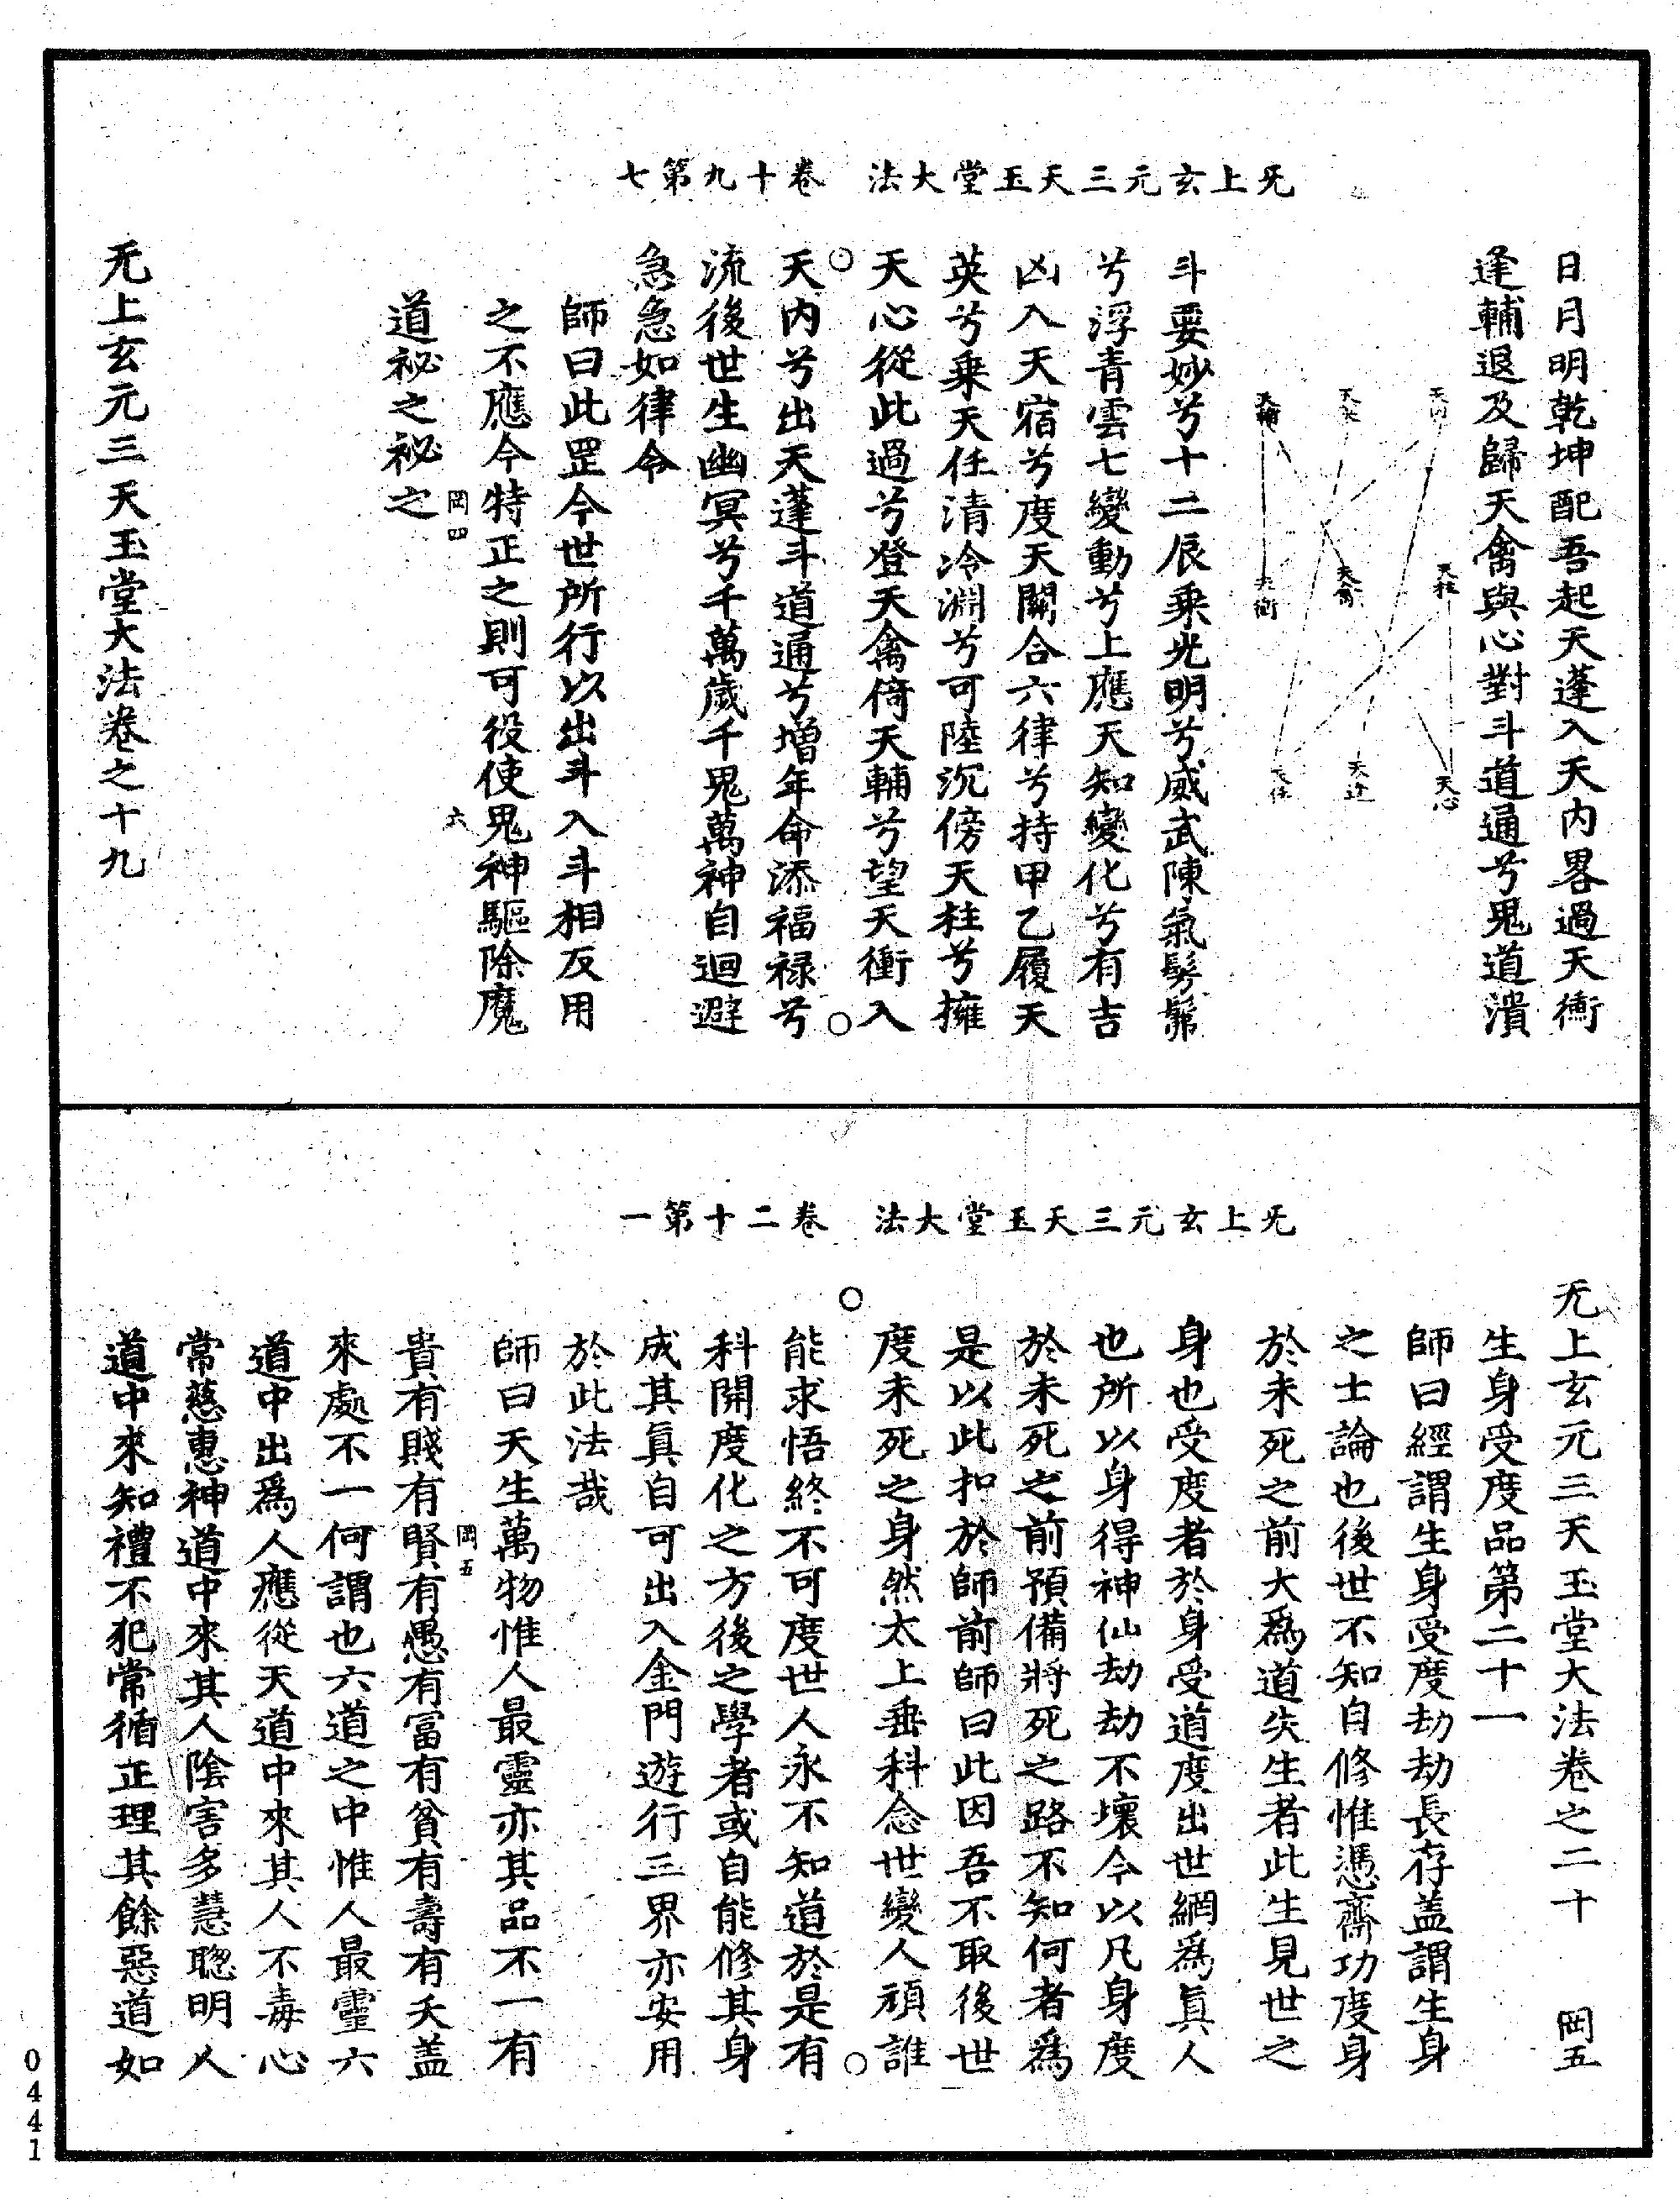 无上玄元三天玉堂大法　卷十九第七
日月明乾坤配吾起天蓬入天內畧過天衝
逢輔退及歸天禽與心對斗道通兮鬼道潰
天內
天柱
天心
天禽
天輔
天衝
天任
斗要妙兮十二辰乗光明兮威武陳氣髣髴
兮浮青雲七變動兮上應天知變化兮有吉
凶入天宿兮度天關合六律兮持甲乙履天
英兮乗天任清冷淵兮可陸沉傍天柱兮擁
天心從此過兮登天禽倚天輔兮望天衝入
天內兮出天蓬斗道通兮增年命添福禄兮
流後世生幽冥兮千萬歲千鬼萬神自迴避
急急如律令
師曰此罡今世所行以出斗入斗相反用
之不應今特正之則可役使鬼神驅除魔
岡四
六
道祕之祕之
无上玄元三天玉堂大法卷之十九
无上玄元三天玉堂大法　卷二十第一
无上玄元三天玉堂大法卷之二十　岡五
生身受度品第二十一
師曰經謂生身受度劫劫長存盖謂生身
之士論也後世不知自修惟憑齋功度身
於未死之前大爲道失生者此生見世之
身也受度者於身受道度出世網爲眞人
也所以身得神仙劫劫不壞今以凡身度
於未死之前預備將死之路不知何者爲
是以此扣於師前師曰此因吾不取後世
度未死之身然太上垂科念世變人頑誰
能求悟終不可度世人永不知道於是有
科開度化之方後之學者或自能修其身
成其眞自可出入金門遊行三界亦安用
於此法哉
師曰天生萬物惟人最靈亦其品不一有
岡五
貴有賤有賢有愚有冨有貧有壽有夭盖
來處不一何謂也六道之中惟人最靈六
道中出爲人應從天道中來其人不毒心
常慈惠神道中來其人陰害多慧聰明人
道中來知禮不犯常循正理其餘惡道如
0441